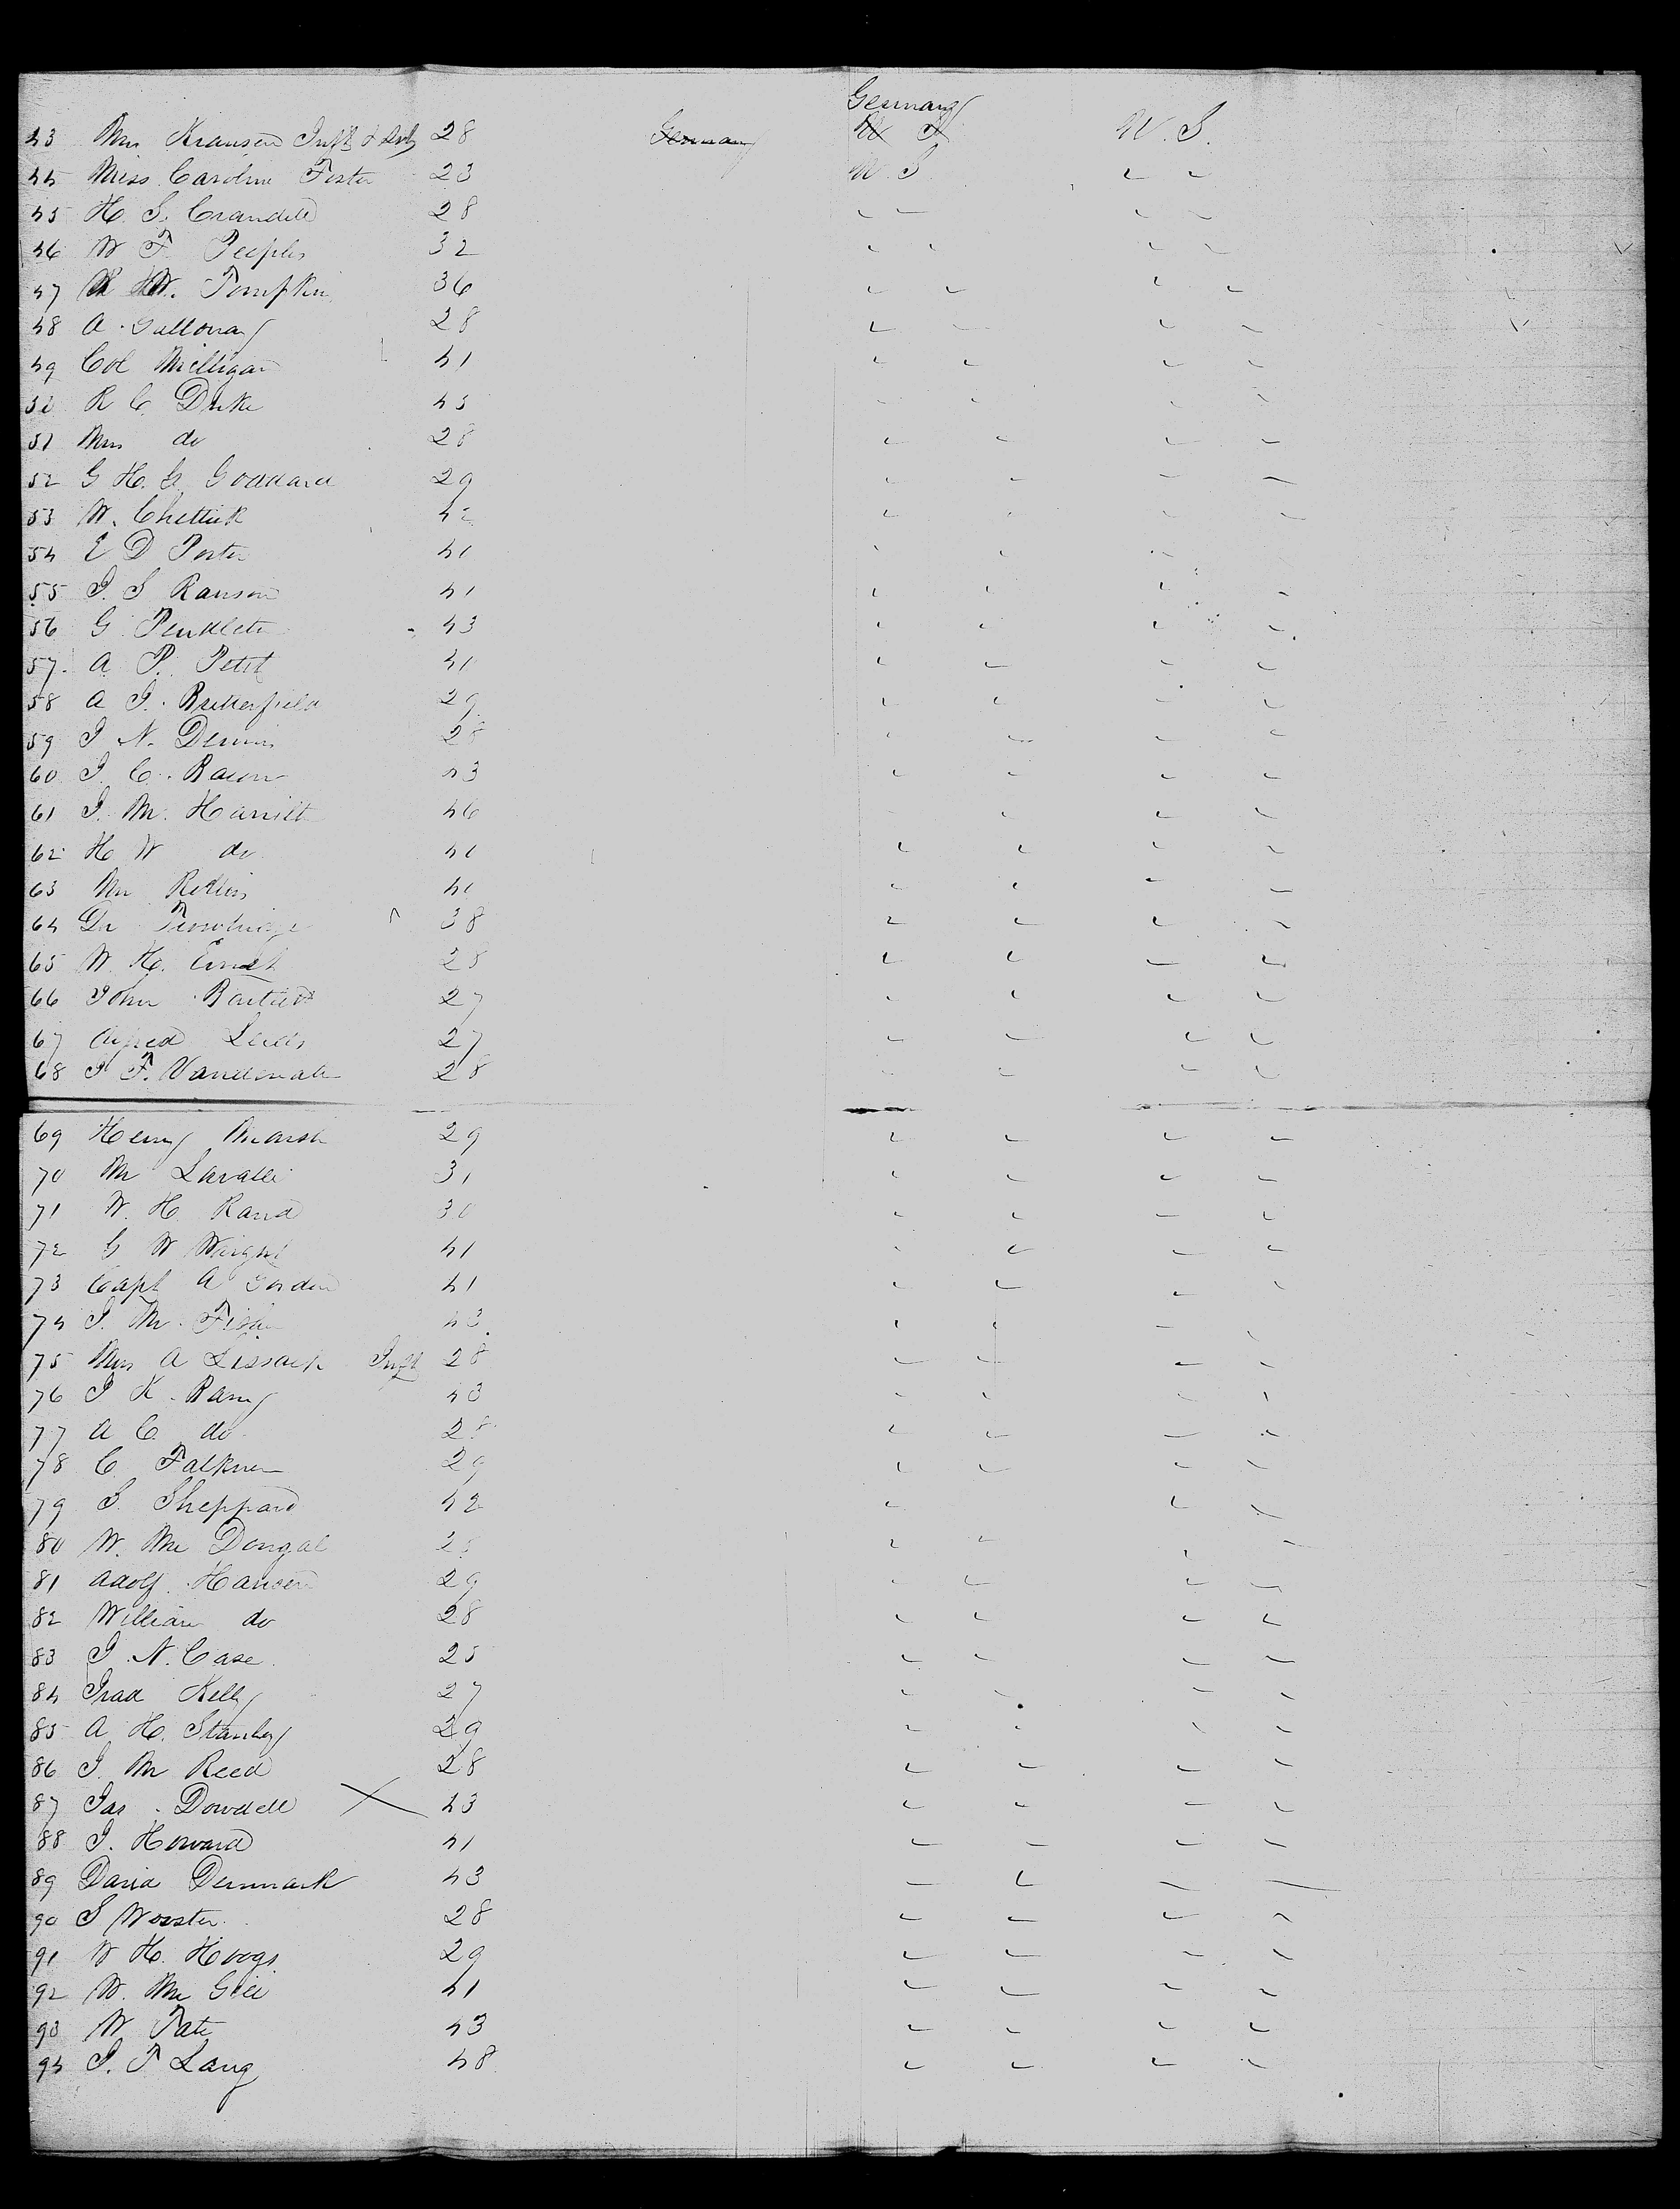 Germany
43 Mrs Kransen Inft & Svt 28 Germany U S U. S.
44 Miss Caroline Foster 23 U. S " "
45 H. S. Crandell 28 " " " "
46 W F Peeples 32 " " " "
47 W. Tompkin 36 " " " "
48 A. Galloway 28 " " " "
49 Col Milligan 41 " " " "
50 R C. Duke 45 " " " "
51 Mrs do 28 " " " "
52 G H. G. Goddard 29 " " " "
53 W. Chettick 42 " " " "
54 E D Porter 40 " " " "
55 J. S Ranson 41 " " " "
56 G Pendleton 43 " " " "
57. A. P. Petit 41 " " " "
58 A J. Butterfield 29 " " " "
59 J N. Dennis 28 " " " "
60 J. C. Bacon 43 " " " "
61 J. M. Hamilt 46 " " " "
62 H W do 40 " " " "
63 Mr Rollins 40 " " " "
64 Dr Trowbridge 38 " " " "
65 W. H. Ernst 28 " " " "
66 John Bartlett 27 " " " "
67 Alfred 27 " " " "
68 J F. Vandewater 28 " " " "
69 Henry Marsh 29 " " " "
70 Mr Lavalle 31 " " " "
71 W. H. Rand 30 " " " "
72 G W Wright 41 " " " "
73 Capt A Gordon 41 " " " "
74 J. M. Fisher 43 " " " "
75 Mrs A Lissack Inft 28 " " " "
76 J K. Barry 43 " " " "
77 A C. do 28 " " " "
78 C. Falkner 29 " " " "
79 S. Sheppard 42 " " "
80 W. Mc Dougal " " " "
81 Adolf Hansen 29 " " " "
82 William do 28 " " " "
83 J. N. Case 25 " " " "
84 Irad Kelly 27 " " " "
85 A. H. Stanley 29 " " " "
86 J. M Reed 28 " " " "
87 Jas. Dowdell X 43 " " " "
88 J. Howard 41 " " " "
89 David Denmark 43 " " " "
90 S Wooster 28 " " " "
91 W H. Hoogs 29 " " " "
92 W. Mc Gill 41 " " " "
93 W Tate 43 " " " "
94 J. T Lang 48 " " " "